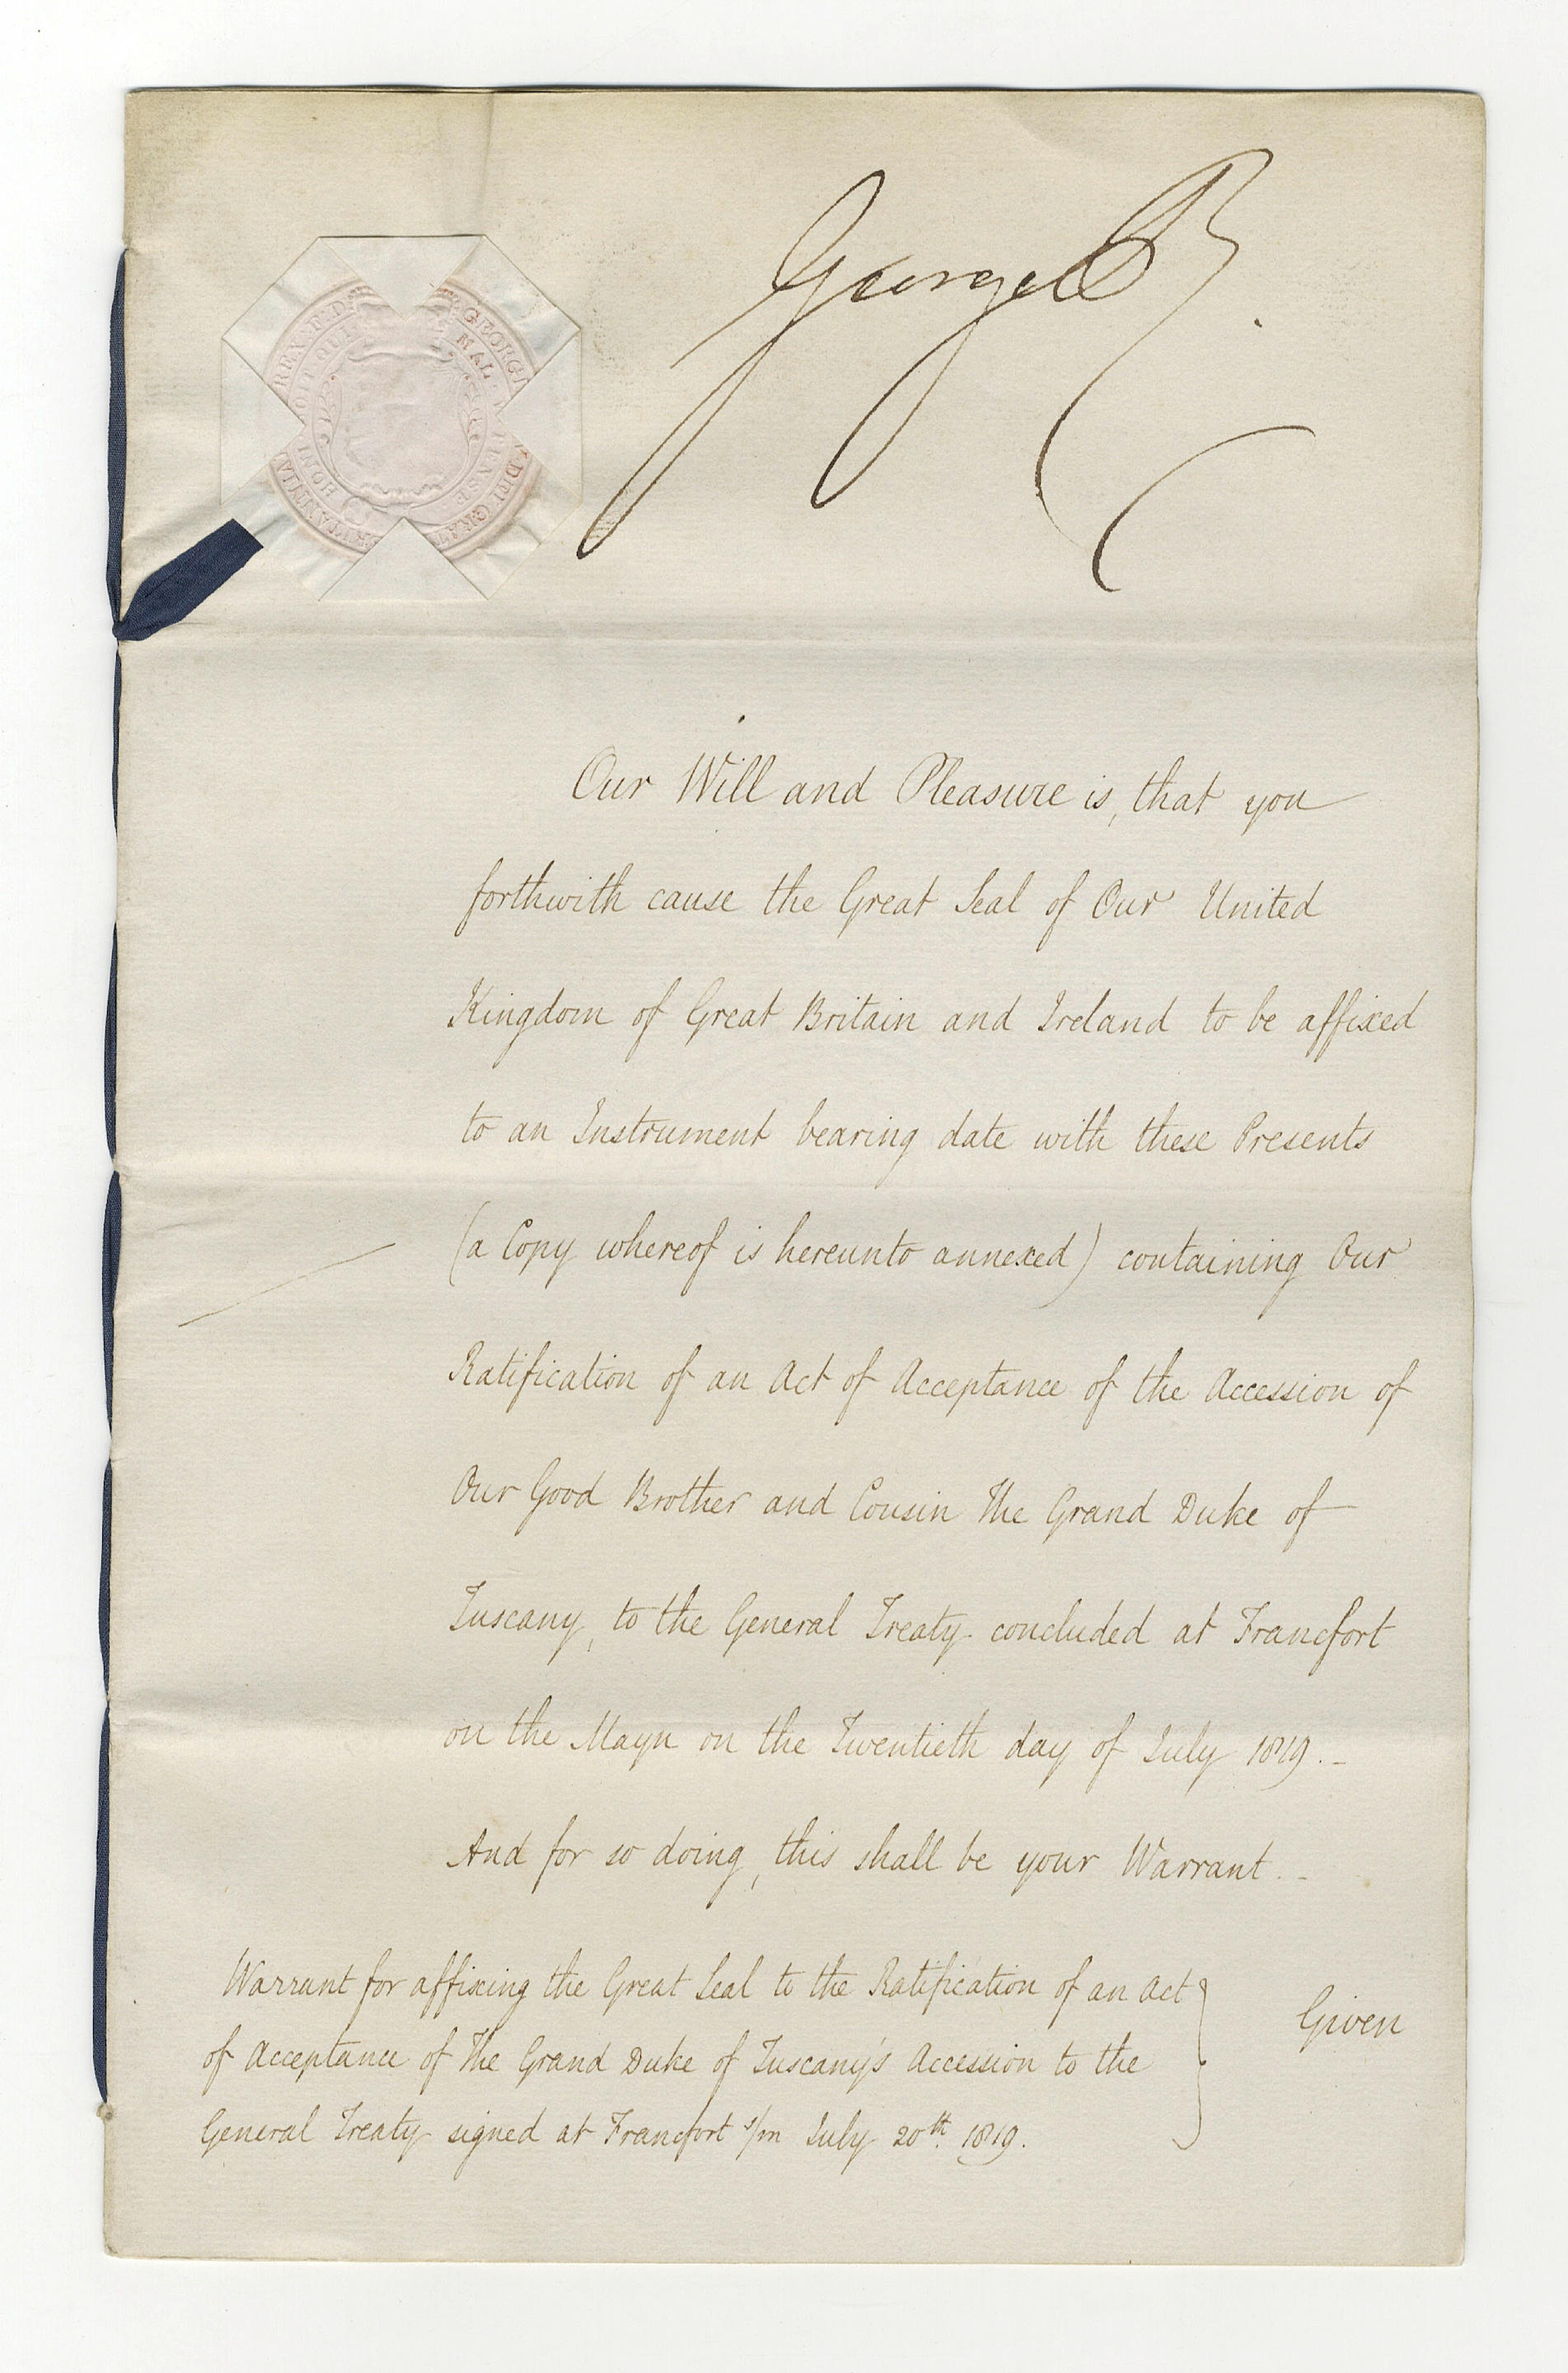 George R.
GEORGI
DEI GRA
REX F D
HONI
SOIT QUI
MAL
Our Will and Pleasure is, that you
forthwith cause the Great Seal of Our United
Kingdom of Great Britain and Ireland to be affixed
to an Instrument bearing date with these Presents
(a Copy whereof is hereunto annexed) containing Our
Ratification of an Act of Acceptance of the Accession of
Our Good Brother and Cousin The Grand Duke of
Tuscany, to the General Treaty concluded at Francfort
on the Mayn on the Twentieth day of July 1819.
And for so doing, this shall be your Warrant.
Warrant for affixing the Great Seal to the Ratification of an Act
of Acceptance of The Grand Duke of Tuscany's Accession to the
General Treaty signed at Francfort s/m July 20th 1819.
Given